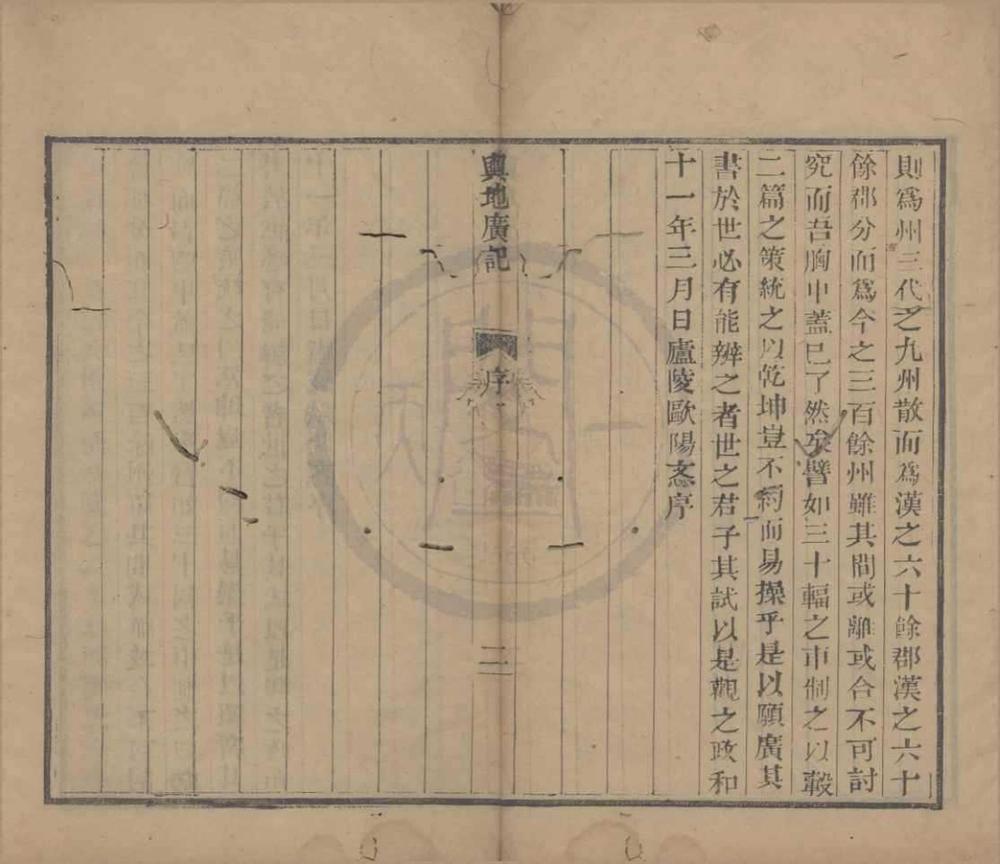 則爲州三代之九州散而爲漢之六十餘郡漢之六十
餘郡分而爲今之三百餘州雖其間或離或合不可討
究而吾胸中蓋已了然矣譬如三十輻之車制之以轂
二篇之策統之以乾坤豈不約而易操乎是以願廣其
書於世必有能辨之者世之君子其試以是觀之政和
十一年三月日廬陵歐陽忞序
輿地廣記
序
二